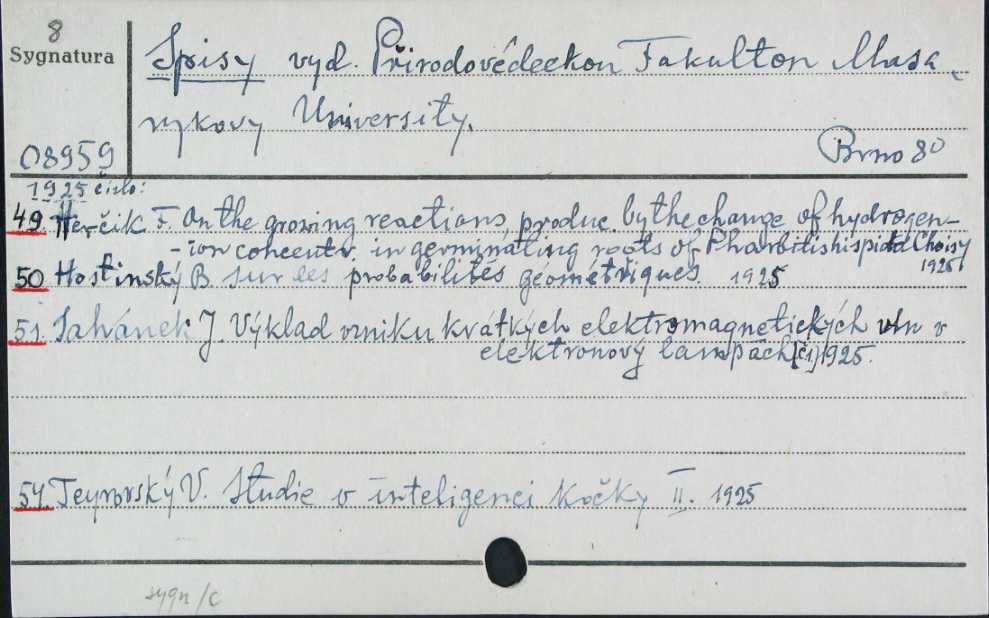 8
Sygnatura
Spisy vyd. Přirodovědeckou Fakultou Masa
rykovy University.
08959
Brno 8º
1925 číslo:
49. Herčik F. On the growing reactions, produc. by the change of hydrogen-
-ion concentr. in germinating roots of Pharbitis hispida Choisy
1925
50 Hostinský B. Sur les probabilités géometriques. 1925
51. Sahánek J. Výklad vzniku krátkých elektromagnetických vln v
elektronový lampach [č1] 1925.
54. Teyrovský V. Studie o inteligenci Kočky II. 1925
sygn/c